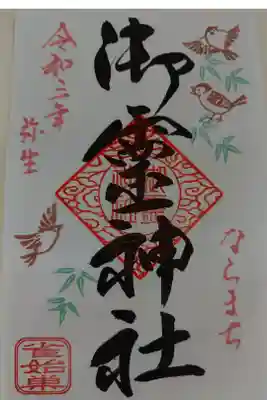 ならまち
御霊神社
令和三年
弥生
雀始巣